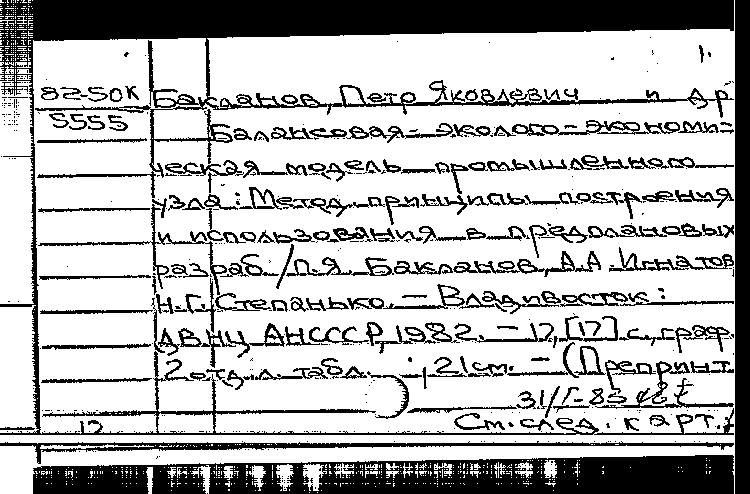 1.
82-50К Бакланов, Петр Яковлевич и др
5555 Балансовая эколого-экономи-
ческая модель промышленного
узла: Метод. принципы построения
и использования в предплановых
разраб. / П.Я. Бакланов, А.А. Игнатов
Н.Г. Степанько. — Владивосток:
ДВНЦ АНСССР, 1982. — 17, [17] с., граф.
2 отд. л. табл. ; 21см. — (Препринт
31/I-83
См. след. карт.
12